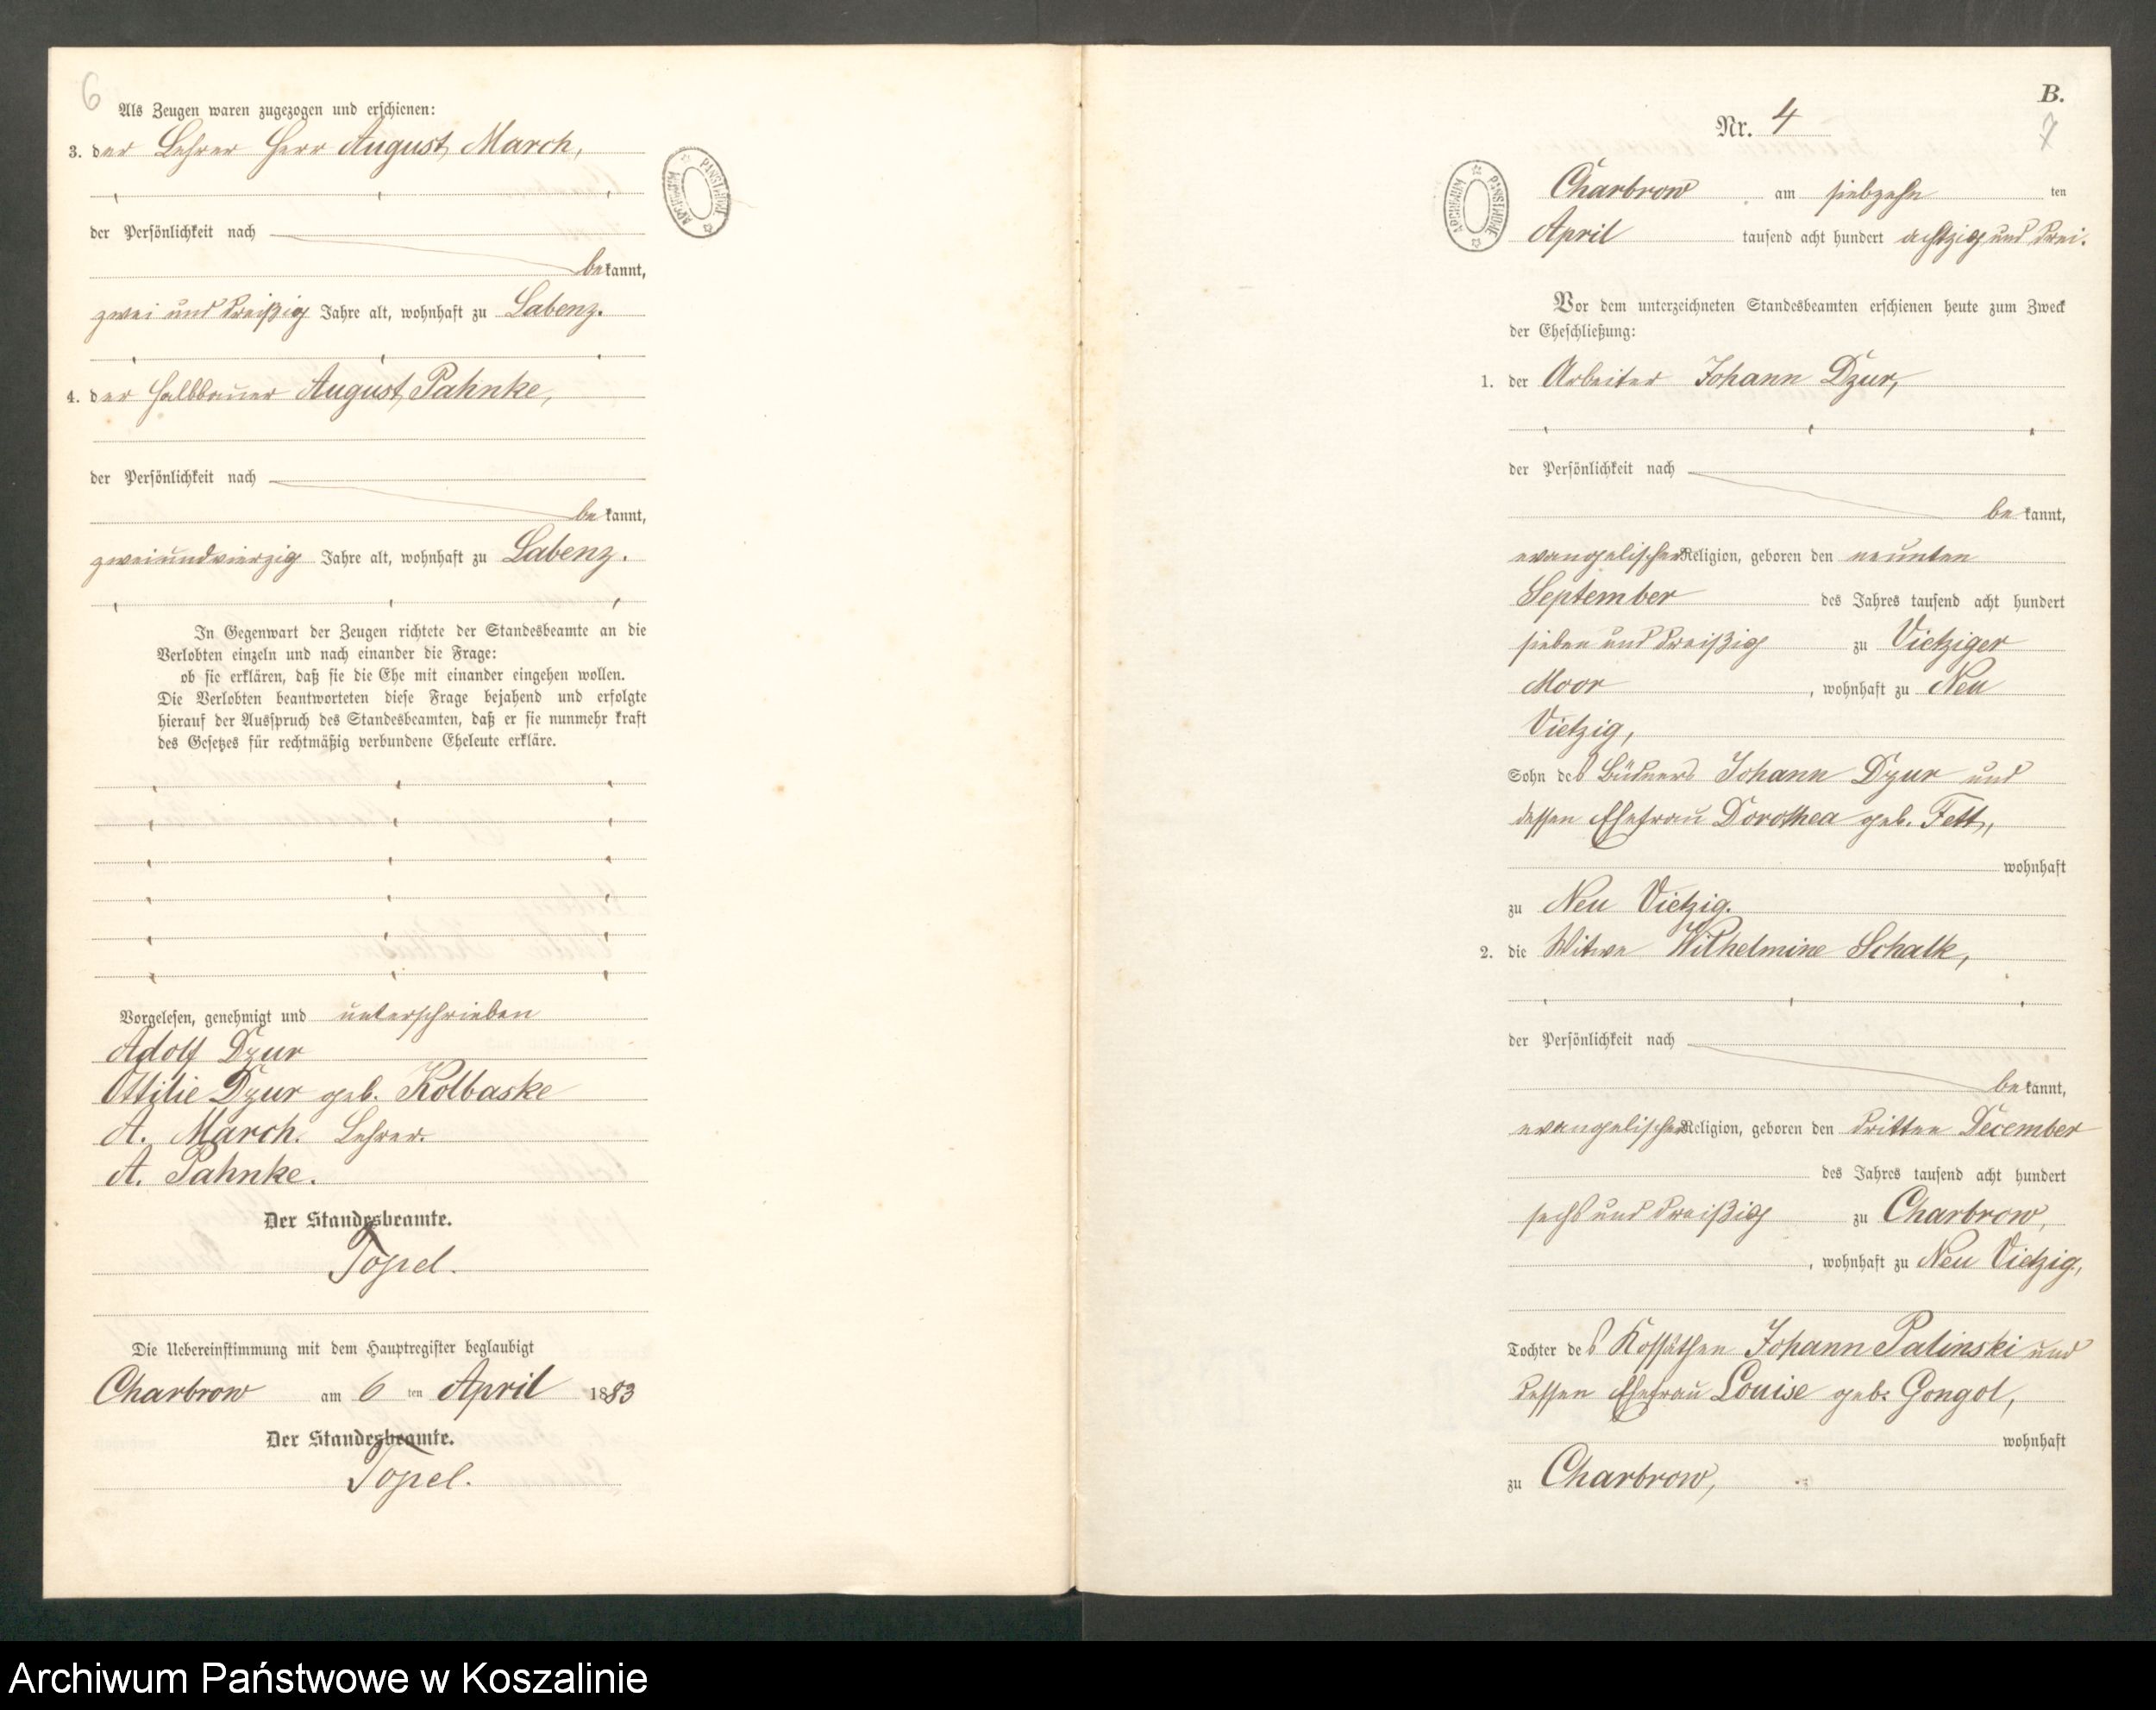 6
Als Zeugen waren zugezogen und erschienen:
3. der Lehrer Herr August March,
der Persönlichkeit nach
bekannt,
zwei und dreißig Jahre alt, wohnhaft zu Labenz.
4. der Halbbauer August Pahnke,
der Persönlichkeit nach
bekannt,
zweiundvierzig Jahre alt, wohnhaft zu Labenz.
In Gegenwart der Zeugen richtete der Standesbeamte an die
Verlobten einzeln und nach einander die Frage:
ob sie erklären, daß sie die Ehe mit einander eingehen wollen.
Die Verlobten beantworteten diese Frage bejahend und erfolgte
hierauf der Ausspruch des Standesbeamten, daß er sie nunmehr kraft
des Gesetzes für rechtmäßig verbundene Eheleute erkläre.
Vorgelesen, genehmigt und unterschrieben
Adolf Dzur
Ottilie Dzur geb. Kolbaske
A. March. Lehrer.
A. Pahnke.
Der Standesbeamte.
Topel.
Die Uebereinstimmung mit dem Hauptregister beglaubigt
Charbrow am 6 ten April 1883
Der Standesbeamte.
Topel.
ARCHIWUM PAŃSTWOWE
B.
7
Nr. 4
ARCHIWUM PAŃSTWOWE
Charbrow am siebzehn ten
April tausend acht hundert achtzig und drei.
Vor dem unterzeichneten Standesbeamten erschienen heute zum Zweck
der Eheschließung:
1. der Arbeiter Johann Dzur,
der Persönlichkeit nach
bekannt,
evangelischer Religion, geboren den neunten
September des Jahres tausend acht hundert
sieben und dreißig zu Vietziger
Moor, wohnhaft zu Neu
Vietzig,
Sohn des Büdners Johann Dzur und
dessen Ehefrau Dorothea geb. Fett,
wohnhaft
zu Neu Vietzig.
2. die Witwe Wilhelmine Schalk,
der Persönlichkeit nach
bekannt,
evangelischer Religion, geboren den dritten December
des Jahres tausend acht hundert
sechs und dreißig zu Charbrow,
, wohnhaft zu Neu Vietzig,
Tochter des Kossäthen Johann Palinski und
dessen Ehefrau Louise geb. Gongol,
wohnhaft
zu Charbrow,
Archiwum Państwowe w Koszalinie